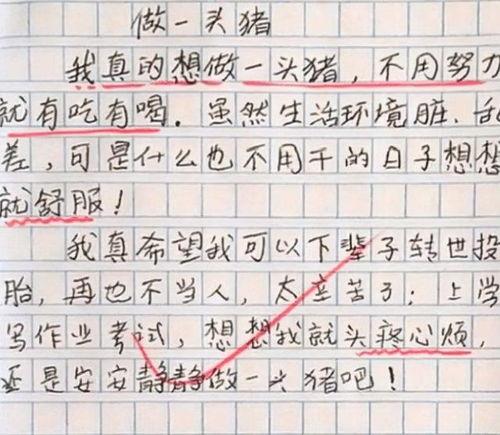 做一头猪
我真的想做一头猪，不用努力
就有吃有喝．虽然生活环境脏、
差，可是什么也不用干的日子想想
就舒服！
我真希望我可以下辈子转世投
胎，再也不当人，太辛苦了；上学
写作业考试，想想我就头疼心烦，
还是安安静静做一头猪吧！